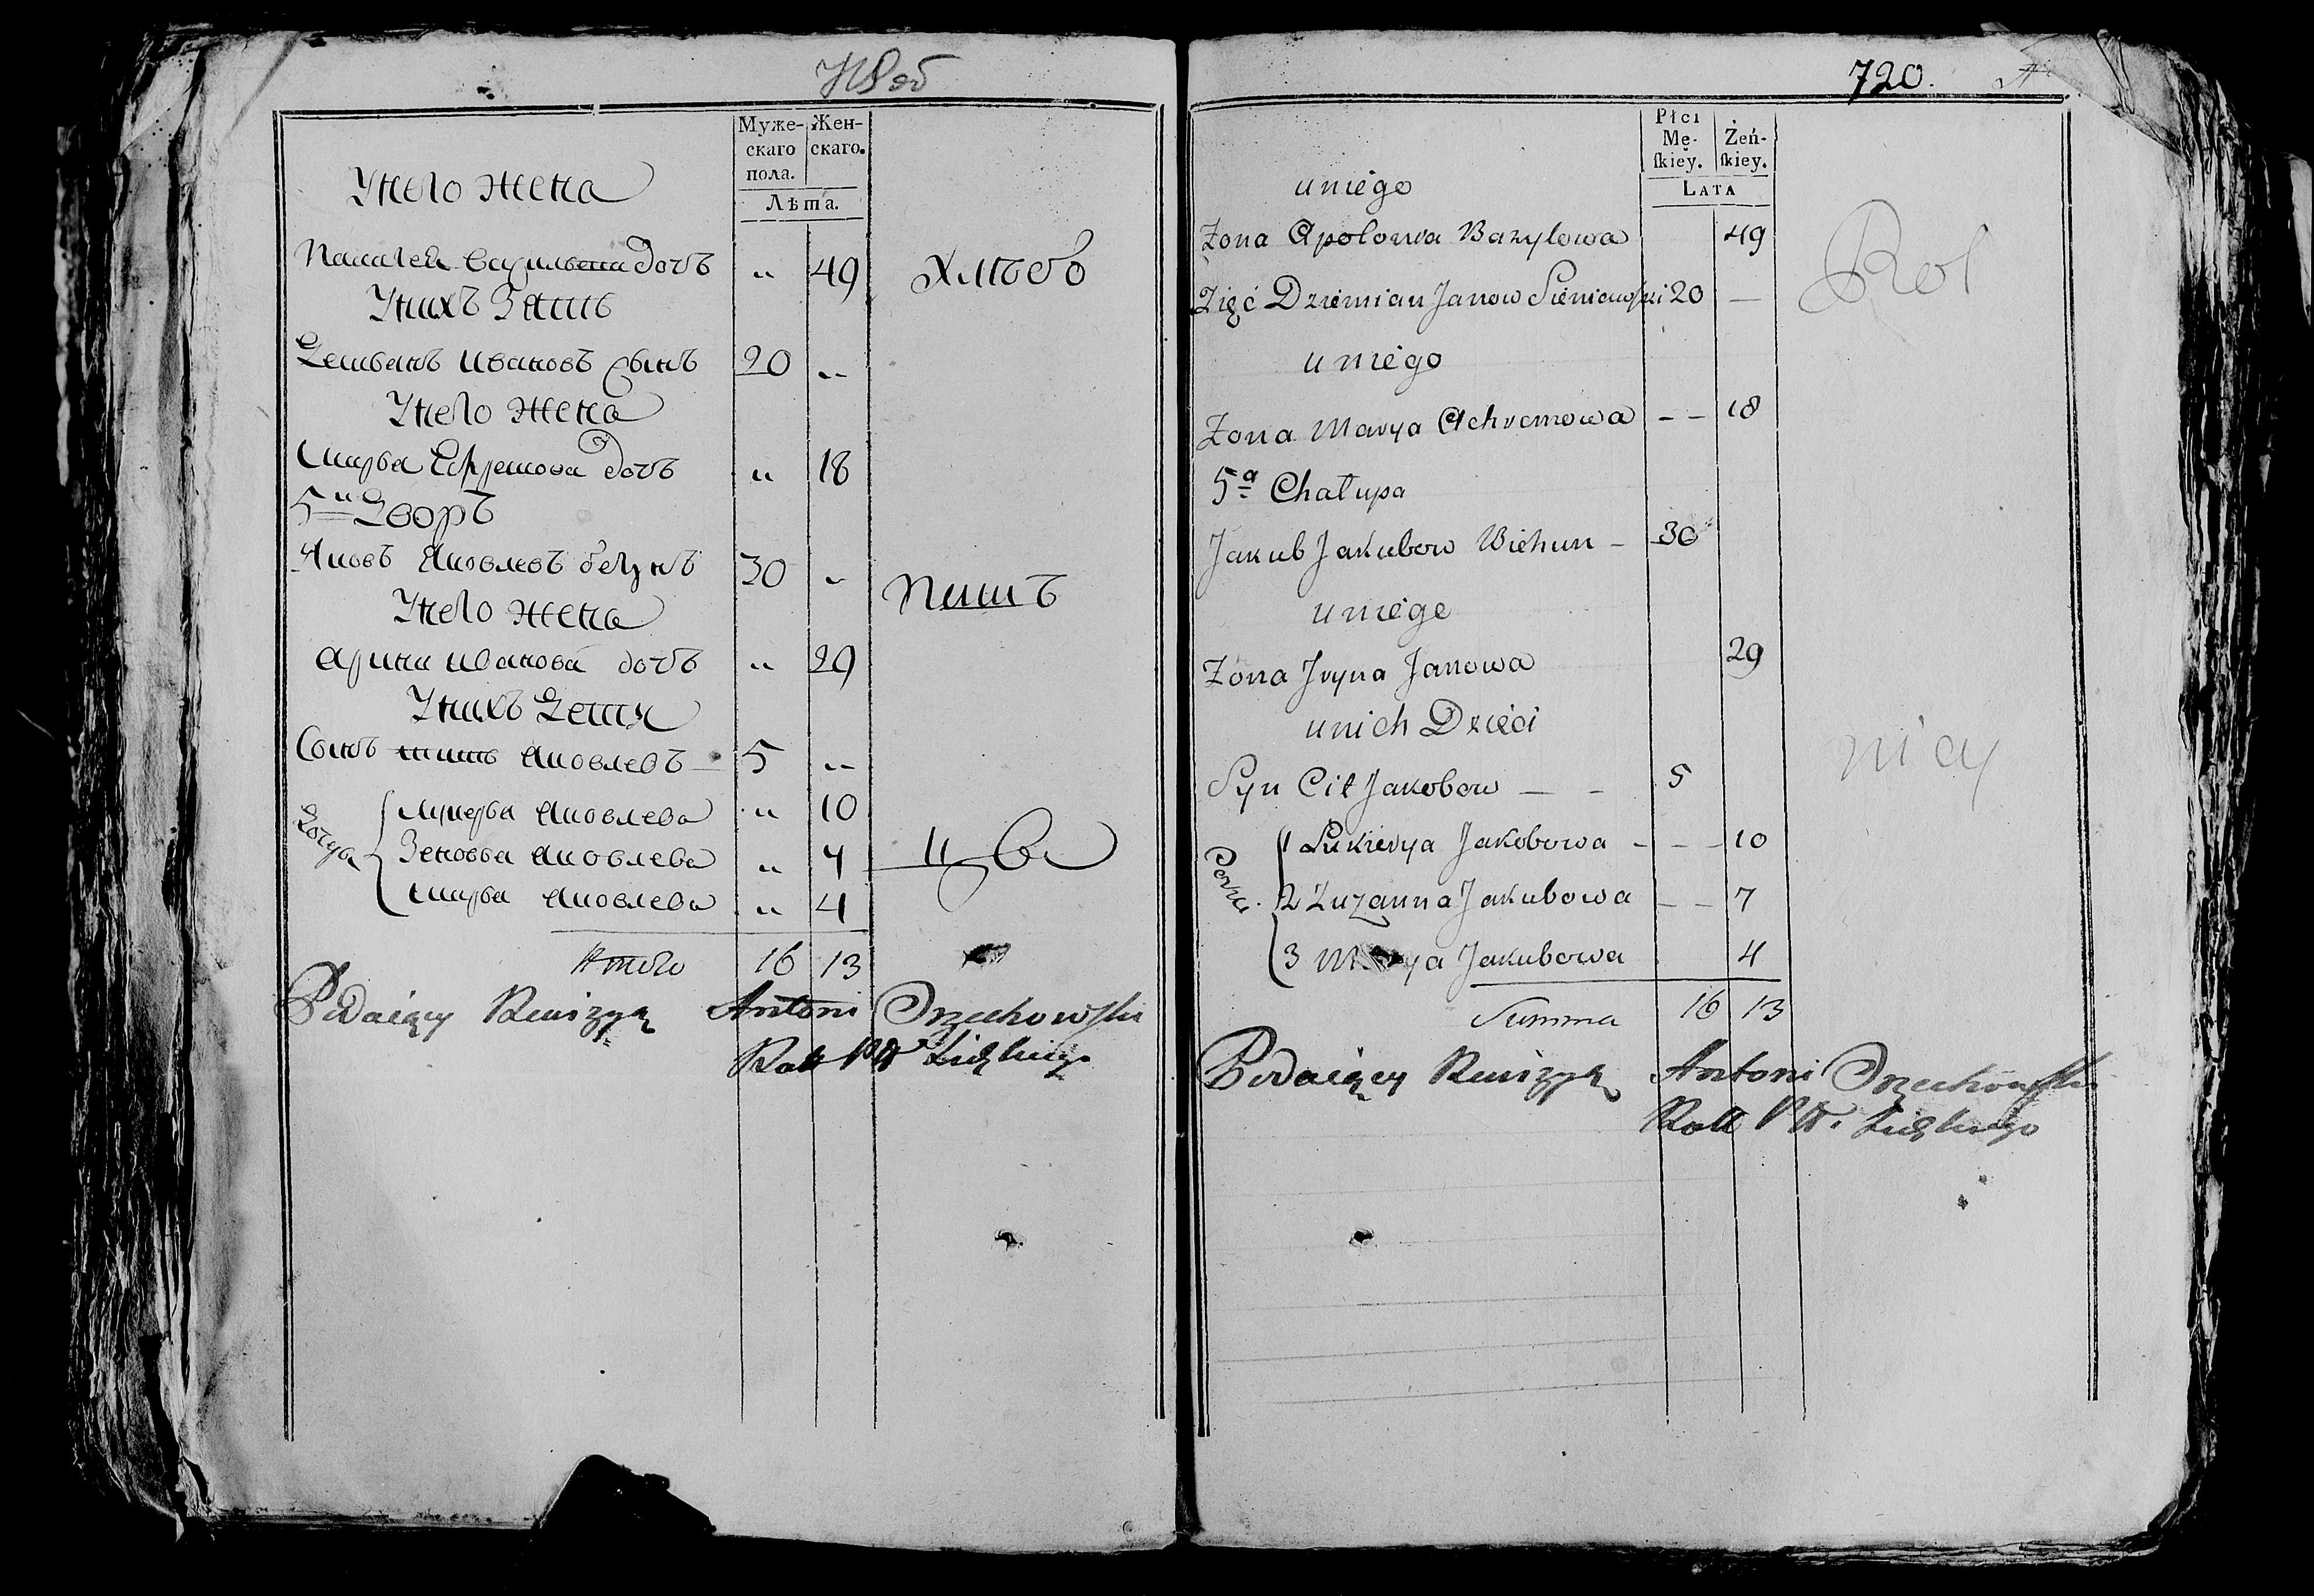 Муже-
скаго
пола.
Жен-
скаго.
Лѣта.
У него жена
Пелагея Васильева дочь " 49 Хлѣбо
У нихъ Зять
Демьянъ Ивановъ сынъ 20 "
У него жена
Марья Ефремова дочь " 18
5й Дворъ
Яковъ Яковлевъ бегунъ 30 "
У него жена
Арина Иванова дочь " 29
У нихъ Дети
Сынъ Титъ Яковлевъ 5 "
Дочери
Лукерья Яковлева " 10
Зеновья Яковлева " 7
Марья Яковлева " 4
Итого 16 13
Podaiący Rewizyą Antoni Orzechowski
720.
Płci
Mę-
ſkiéy.
Żeń-
ſkiey.
LATA
u niégo
Zona Apolonia Bazylowa 49
Zięć Dziemian Janow Sieniawski 20 —
u niégo
Zona Marya Achremowa – – 18
5a Chałupa
Jakub Jakubow Biehun – 30
u niégo
Zona Jryna Janowa 29
u nich Dzieci
Syn Cit Jakobow — – 5
Corki
1 Lukierya Jakobowa – – – 10
2 Zuzanna Jakubowa – – 7
3 Marya Jakubowa 4
Summa 16 13
Podaiący Rewizyą Antoni Orzechowski